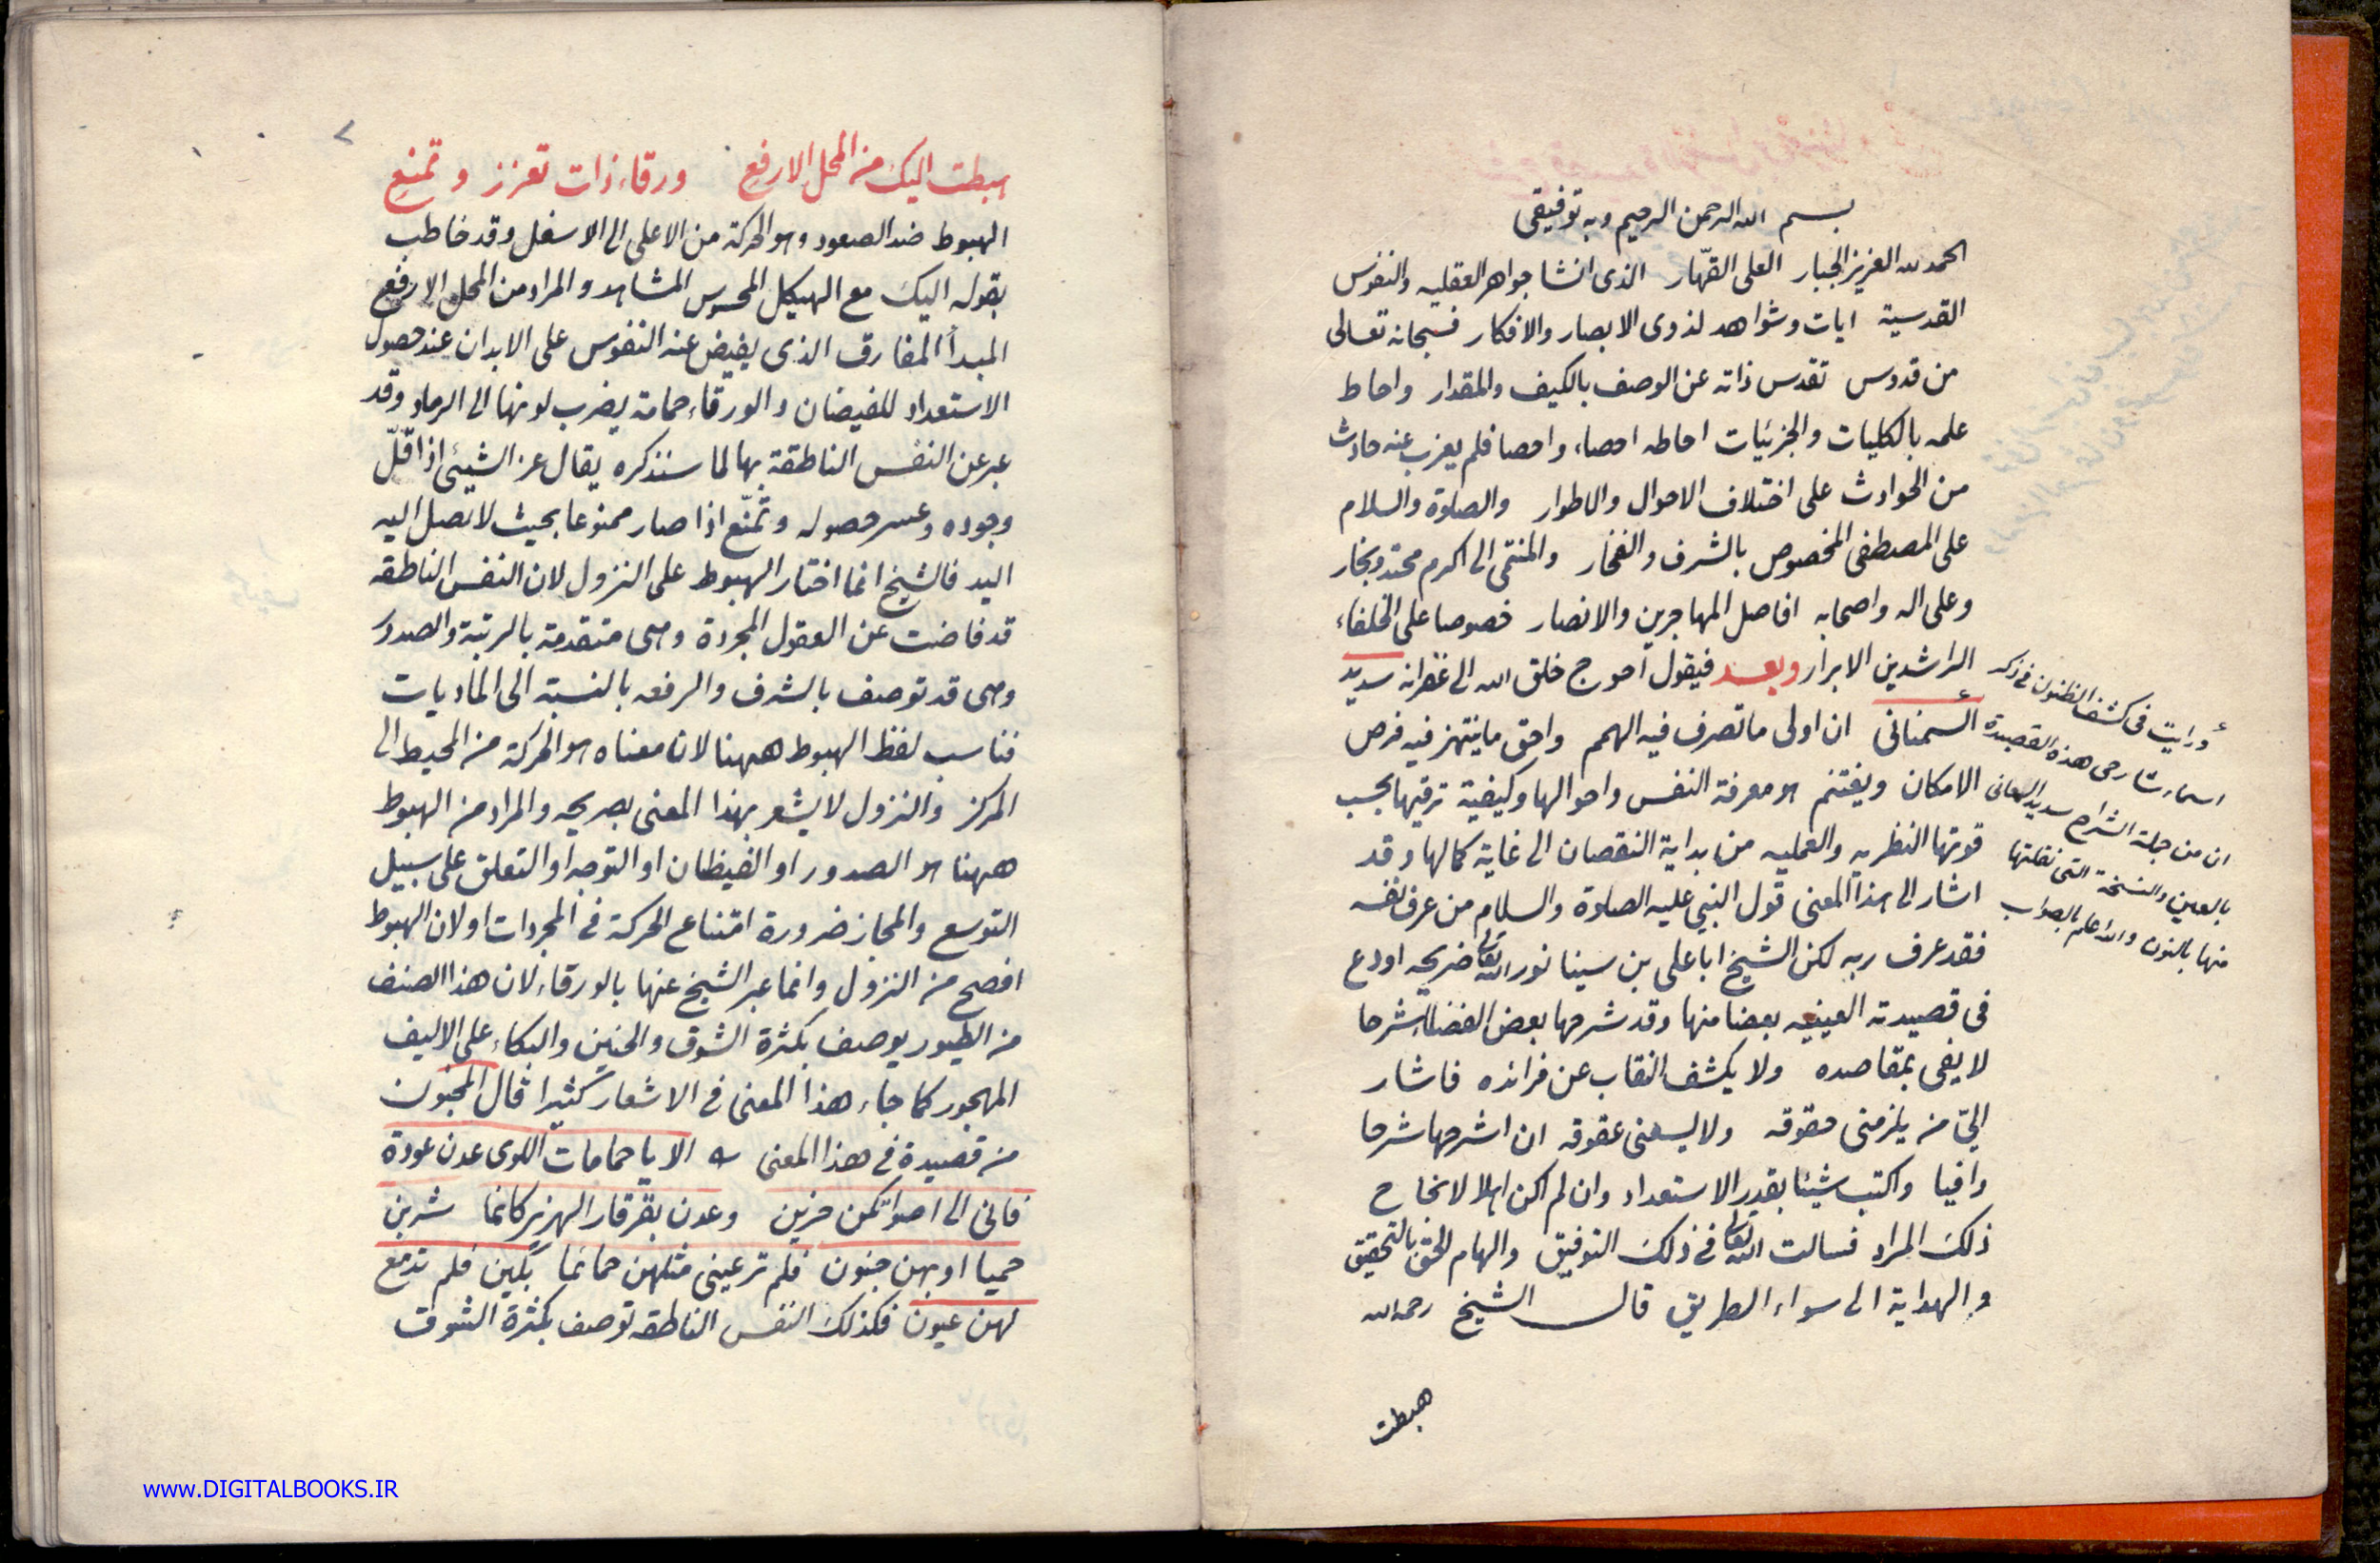 بسم الله الرحمن الرحيم وبه توفيقى
الحمد لله العزيز الجبار العلى القهّار الذى انشا جواهر العقليه والنفوس
القدسية ايات وشواهد لذوى الابصار والافكار فسبحانه تعالى
من قدوس تقدس ذاته عن الوصف بالكيف والمقدار واحاط
علمه بالكليات والجزئيات احاطه احصاء واحصا فلم يعزب عنه حادث
من الحوادث على اختلاف الاحوال والاطوار والصلوة والسلام
على المصطفى المخصوص بالشرف والفخار والمنتمى الى اكرم محتد ونجار
وعلى اله واصحابه افاضل المهاجرين والانصار خصوصا على الخلفاء
الراشدين الابرار وبعد فيقول احوج خلق الله الى غفرانه سديد
السمنانى ان اولى ما تصرف فيه الهمم واحق ما ينتهز فيه فرص
الامكان ويغتنم هو معرفة النفس واحوالها وكيفية ترقيها بحسب
قوتها النظريه والعمليه من بداية النقصان الى غاية كمالها وقد
اشار الى هذا المعنى قول النبي عليه الصلوة والسلام من عرف نفسه
فقد عرف ربه لكن الشيخ ابا على بن سينا نور الله تعالى ضريحه اودع
فى قصيدته العينيه بعضا منها وقد شرحها بعض الفضلاء شرحا
لا يفى بمقاصده ولا يكشف النقاب عن فرائده فاشار
الىّ من يلزمنى حقوقه ولا يسعنى عقوقه ان اشرحها شرحا
وافيا واكتب شيئا بقدر الاستعداد وان لم اكن اهلا لانجاح
ذلك المراد فسالت الله تعالى فى ذلك التوفيق والهام الحق بالتحقيق
والهداية الى سواء الطريق قال الشيخ رحمه الله
هبطت
ورايت فى كشف الظنون فى ذكر
اسماء شارحى هذه القصيدة
ان من جملة الشراح سديد السمعانى
بالعين والنسخة التى نقلتها
منها بالنون والله اعلم بالصواب
هبطت اليك من المحل الارفع ورقاء ذات تعزز وتمنع
الهبوط ضد الصعود وهو الحركة من الاعلى الى الاسفل وقد خاطب
بقوله اليك مع الهيكل المحسوس المشاهد والمراد من المحل الارفع
المبدأ المفارق الذى يفيض عنه النفوس على الابدان عند حصول
الاستعداد للفيضان والورقاء حمامة يضرب لونها الى الرماد وقد
عبر عن النفس الناطقة بها لما سنذكره يقال عز الشيئ اذا قلّ
وجوده وعسر حصوله وتمنّع اذا صار ممنوعا بحيث لا تصل اليه
اليد فالشيخ انما اختار الهبوط على النزول لان النفس الناطقه
قد فاضت عن العقول المجردة وهى متقدمة بالرتبة والصدور
وهى قد توصف بالشرف والرفعه بالنسبة الى الماديات
فناسب لفظ الهبوط ههنا لان معناه هو الحركة من المحيط الى
المركز والنزول لا يشعر بهذا المعنى بصريحه والمراد من الهبوط
ههنا هو الصدور او الفيظان او التوجه او التعلق على سبيل
التوسع والمجاز ضرورة امتناع الحركة فى المجردات او لان الهبوط
افصح من النزول وانما عبر الشيخ عنها بالورقاء لان هذا الصنف
من الطيور يوصف بكثرة الشوق والحنين والبكاء على الاليف
المهجور كما جاء هذا المعنى فى الاشعار كثيرا قال المجنون
من قصيدة فى هذا المعنى الا يا حمامات اللوى عدن عودة
فانى الى اصواتكن حزين وعدن بقرقار الهزير كانما شربن
حميا او بهن جنون فلم تر عينى مثلهن حمائما بكين فلم تدمع
لهن عيون فكذلك النفس الناطقه توصف بكثرة الشوق
www.DIGITALBOOKS.IR